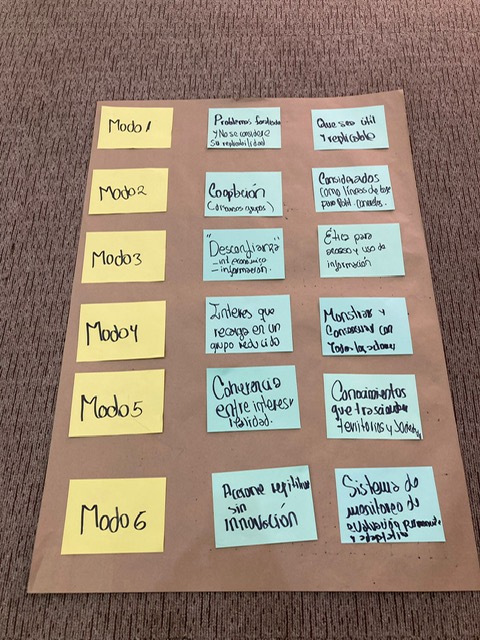 Modo 1
Problemas
y No se considere
su replicabilidad
Que sea útil
y replicable
Modo 2
Cooptación
(diversos grupos)
Considerados
como líneas de base
para
Modo 3
"Desconfianza"
- int económico
- información.
Ética para
acceso y uso de
información
Modo 4
Interes que
recaiga en un
grupo reducido
Monstrar y
con
Todos los actores
Modo 5
Coherencia
entre interes y
realidad.
Conocimientos
que
territorios y
Modo 6
Accione
sin
innovación
Sistema de
monitoreo de
evaluación permanente
y